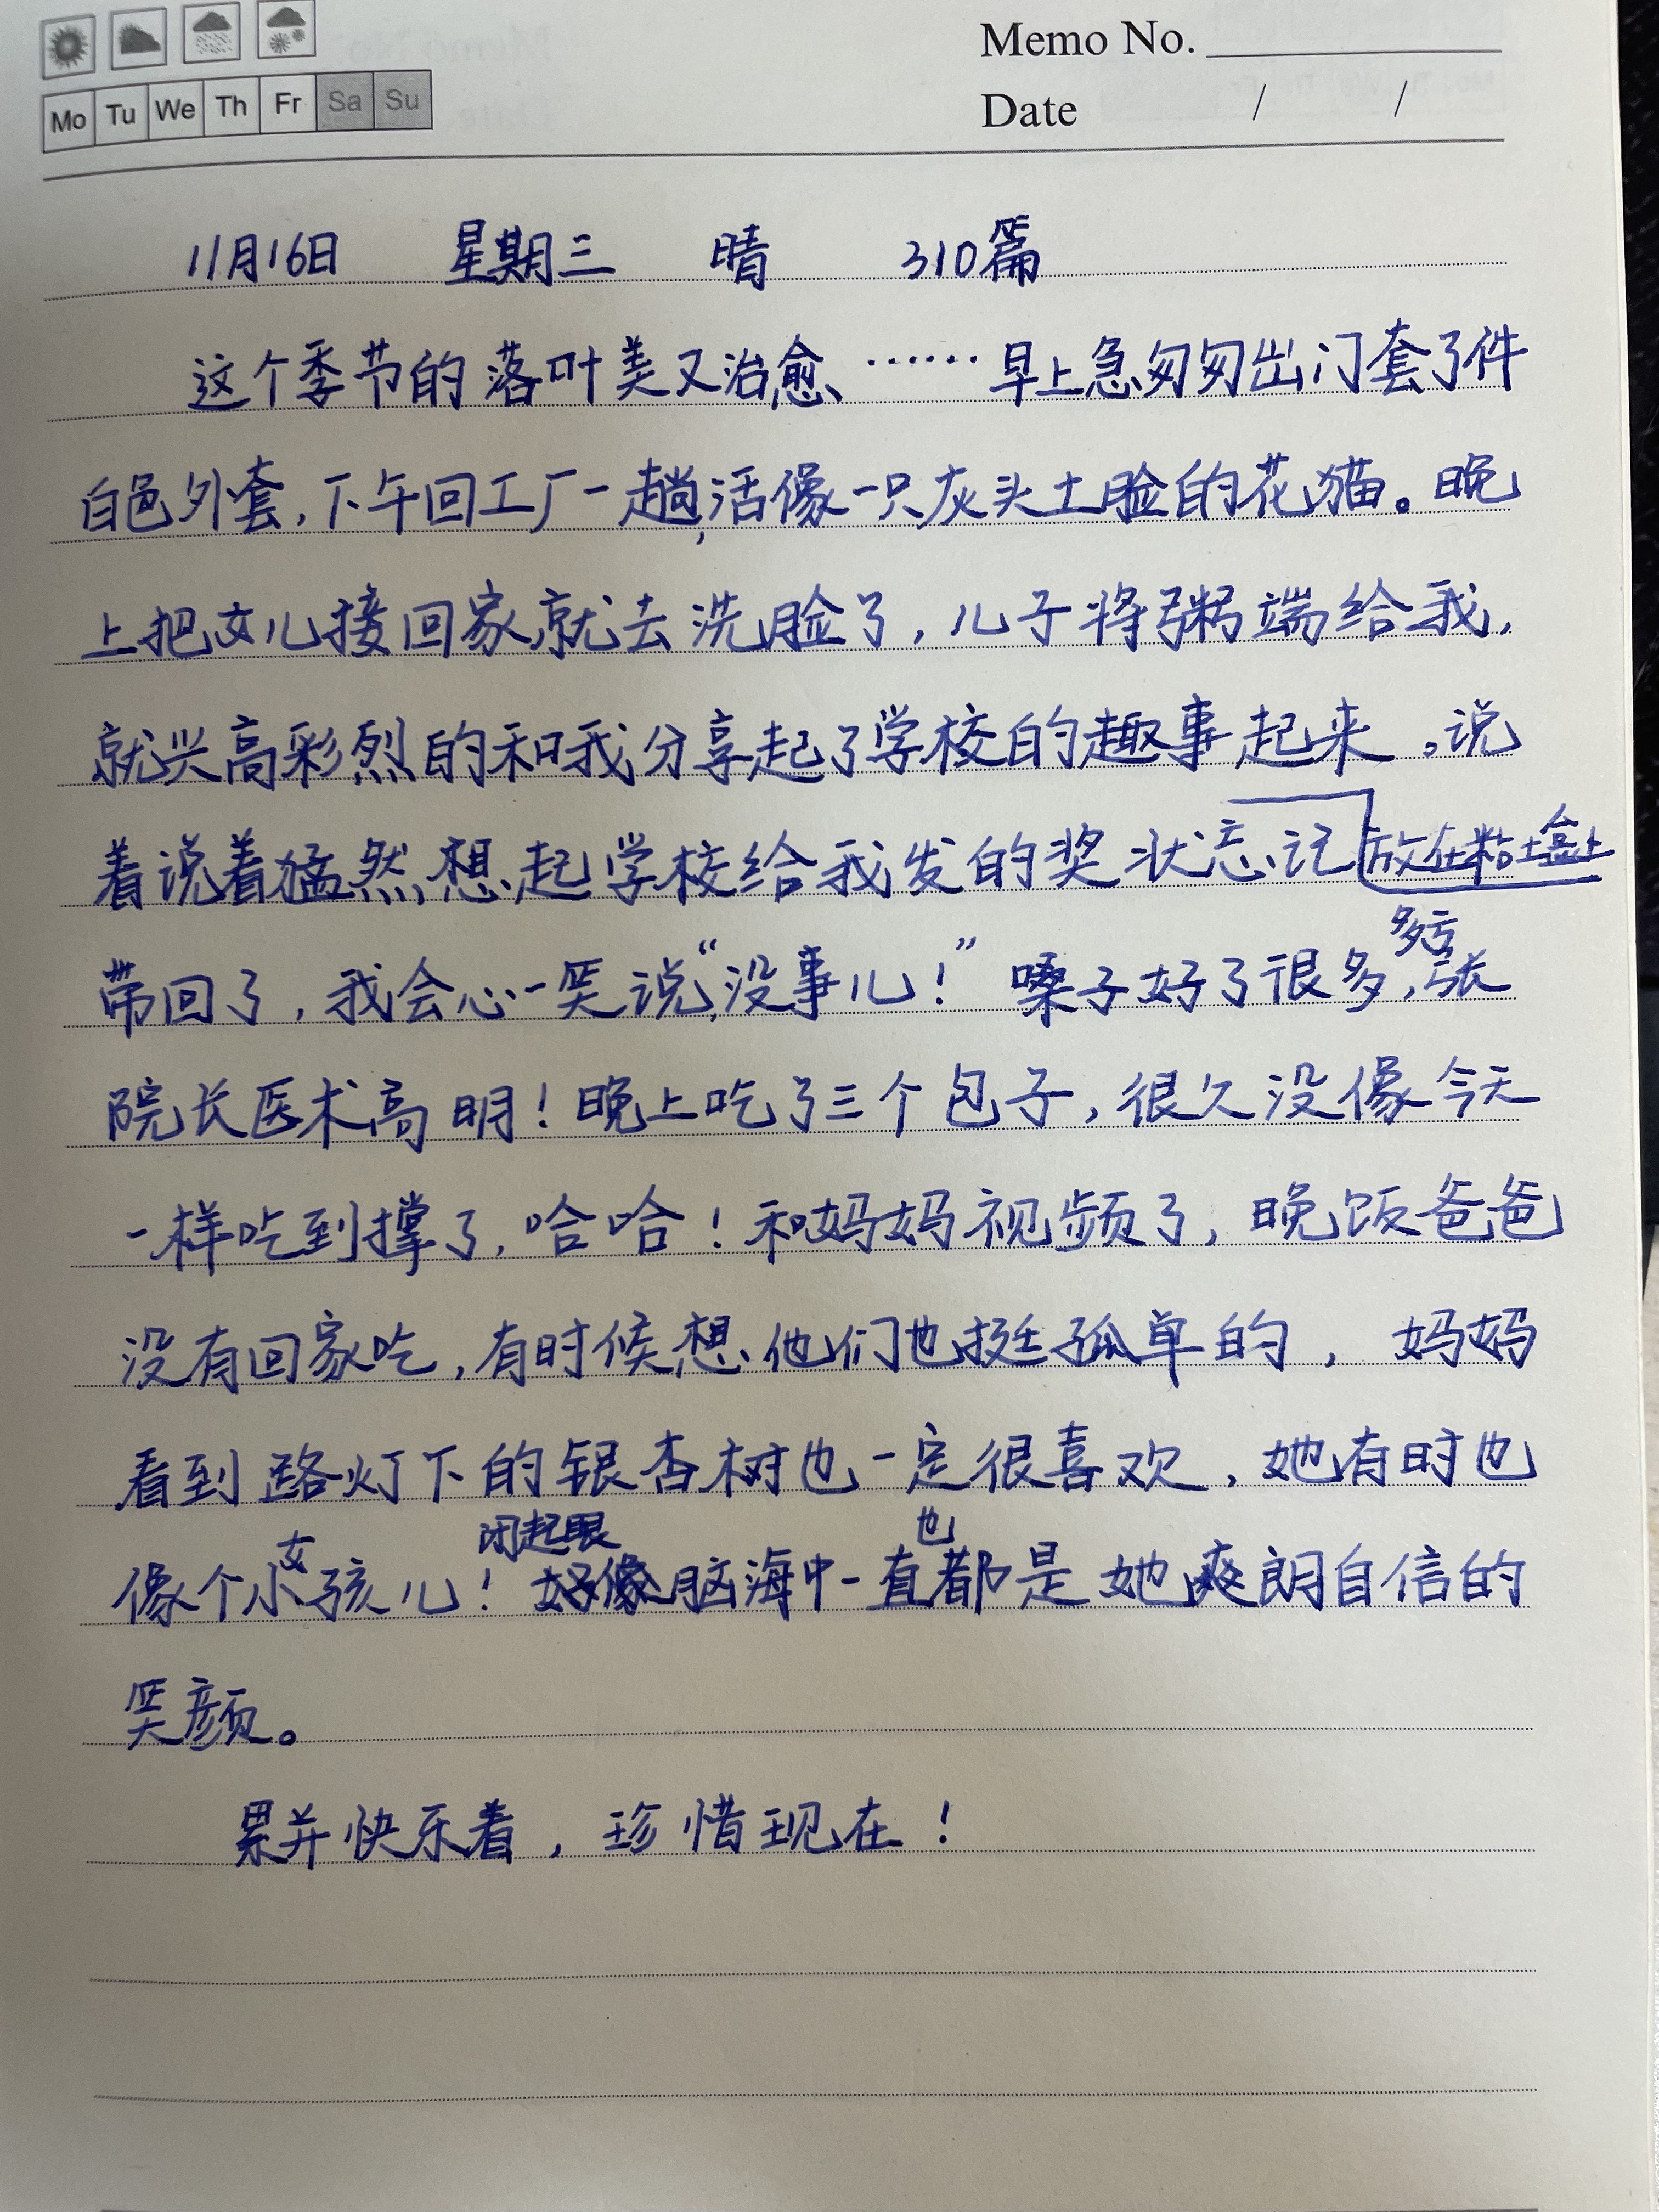 Memo No.
Mo Tu We Th Fr Sa Su
Date / /
11月16日 星期三 晴 310篇
这个季节的落叶美又治愈……早上急匆匆出门套了件
白色外套,下午回工厂一趟,活像一只灰头土脸的花猫。晚
上把女儿接回家就去洗脸了,儿子将粥端给我,
就兴高彩烈的和我分享起了学校的趣事起来。说
着说着猛然想起学校给我发的奖状忘记放在粘土盒上
带回了,我会心一笑说“没事儿!”嗓子好了很多,多亏张
院长医术高明!晚上吃了三个包子,很久没像今天
一样吃到撑了,哈哈!和妈妈视频了,晚饭爸爸
没有回家吃,有时候想他们也挺孤单的,妈妈
看到路灯下的银杏树也一定很喜欢,她有时也
像个小女孩儿!闭起眼脑海中一直也都是她爽朗自信的
笑颜。
累并快乐着,珍惜现在!